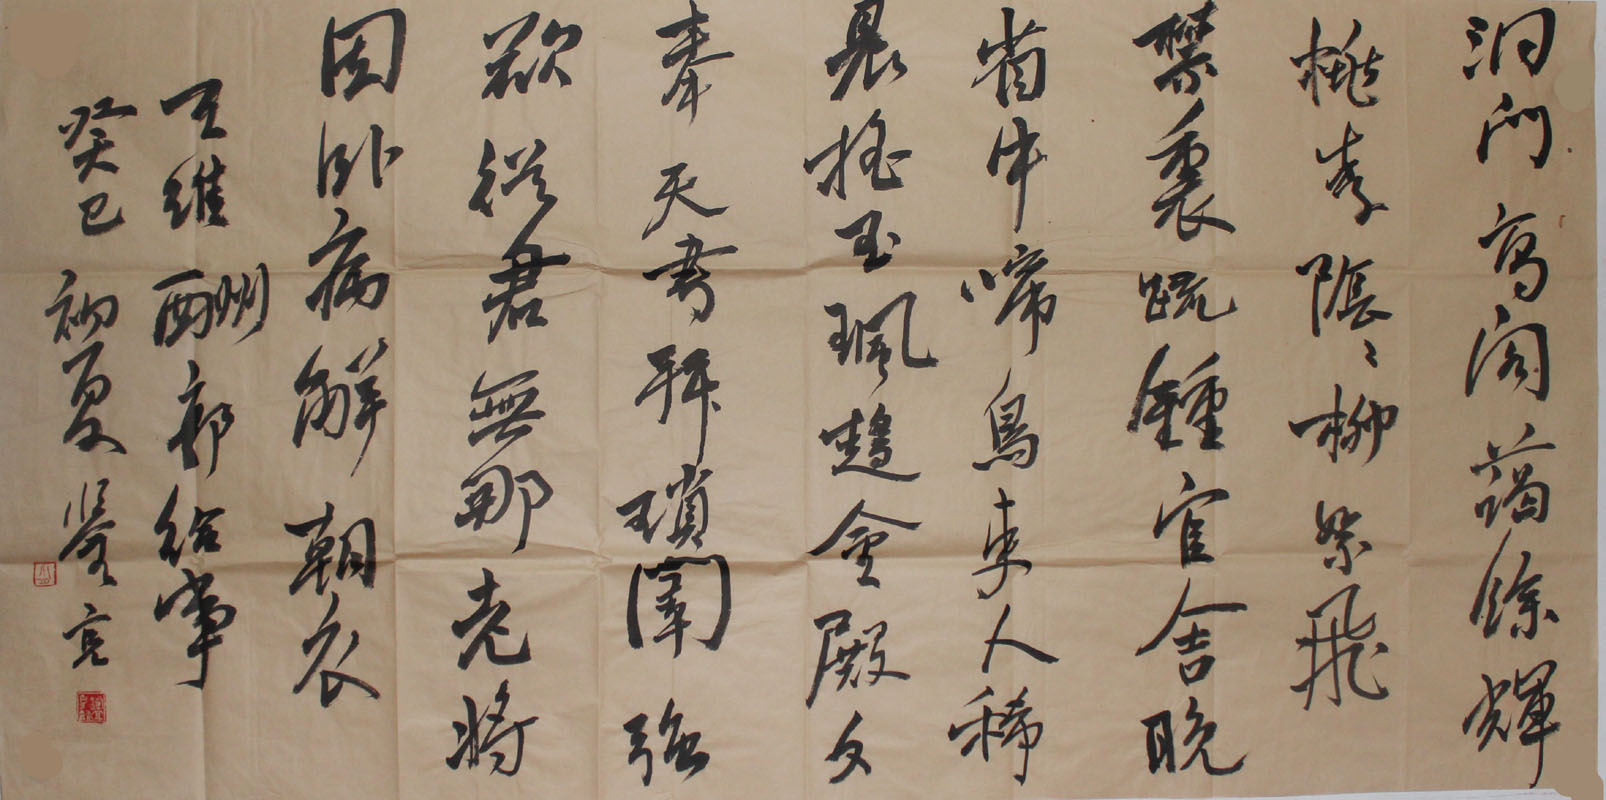 洞門高阁藹餘輝
桃李陰々柳絮飛
禁裏疏鍾官舍晚
省中啼鳥吏人稀
晨摇玉珮趨金殿夕
奉天書拜瑣闈強
欲從君無那老將
因卧病解朝衣
王維酬郭給事
癸巳初夏亮